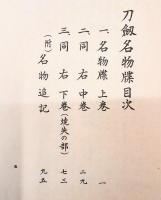 刀劔名物牒目次
一、名物牒上卷 一
二、同 右 中卷 二九
三、同 右 下卷(燒失の部) 七三
(附)名物追記 九五